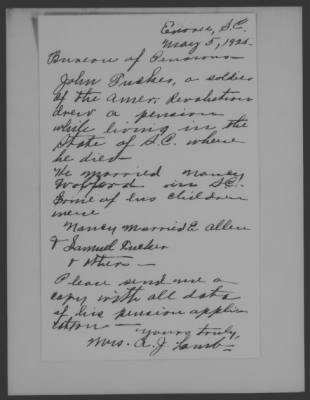 Enoree, S.C.
May 5, 1925.
Bureau of Pensions
John Tucker, a soldier
of the Amer. Revolution
drew a pension
while living in the
State of S.C. where
he died.
He married Nancy
Wofford in S.C.
Some of his children
were
Nancy married Allen
& Samuel Tucker
& others —
Please send me a
copy with all data
of his pension applic
ation —
Yours truly,
Mrs. A. J. Lamb